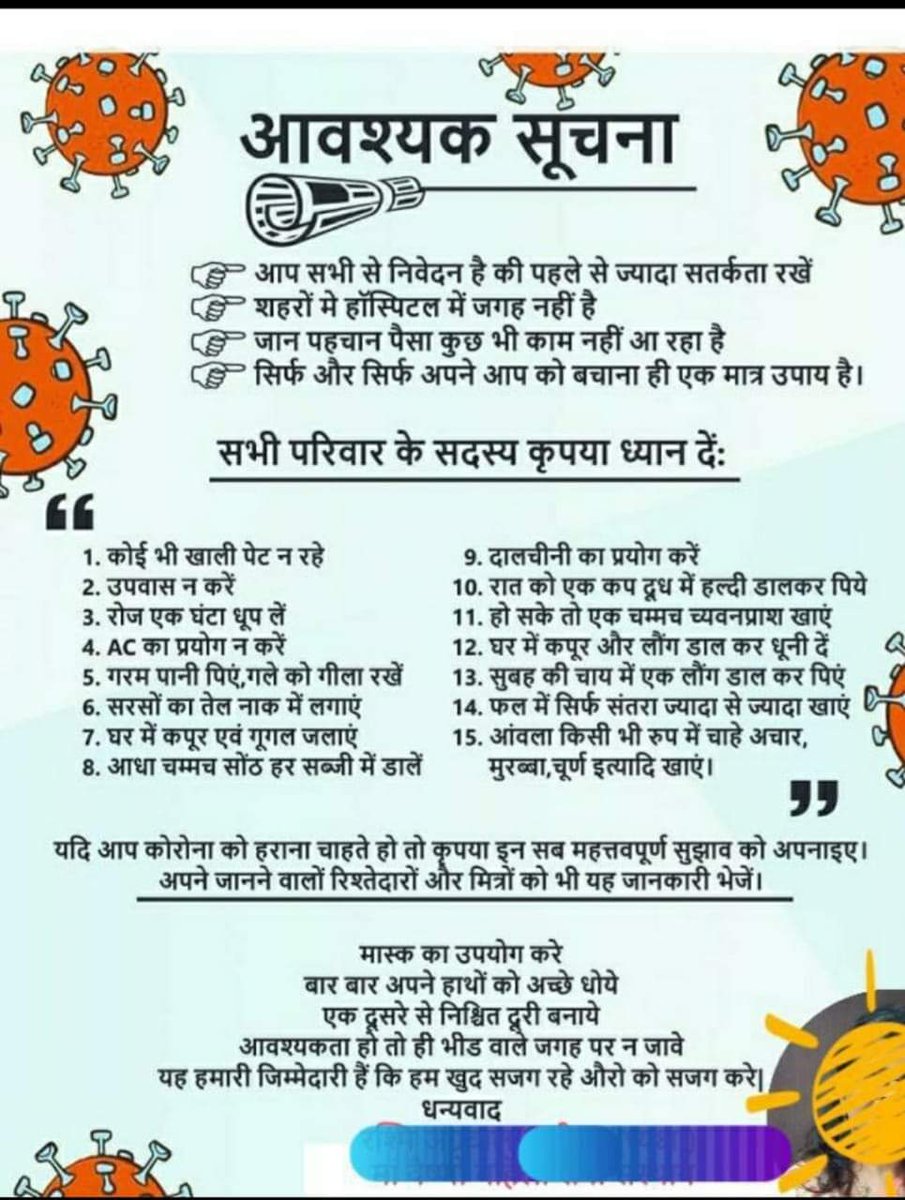 आवश्यक सूचना
आप सभी से निवेदन है की पहले से ज्यादा सतर्कता रखें
शहरों मे हॉस्पिटल में जगह नहीं है
जान पहचान पैसा कुछ भी काम नहीं आ रहा है
सिर्फ और सिर्फ अपने आप को बचाना ही एक मात्र उपाय है।
सभी परिवार के सदस्य कृपया ध्यान दें:
1. कोई भी खाली पेट न रहे
2. उपवास न करें
3. रोज एक घंटा धूप लें
4. AC का प्रयोग न करें
5. गरम पानी पिएं,गले को गीला रखें
6. सरसों का तेल नाक में लगाएं
7. घर में कपूर एवं गूगल जलाएं
8. आधा चम्मच सोंठ हर सब्जी में डालें
9. दालचीनी का प्रयोग करें
10. रात को एक कप दूध में हल्दी डालकर पिये
11. हो सके तो एक चम्मच च्यवनप्राश खाएं
12. घर में कपूर और लौंग डाल कर धूनी दें
13. सुबह की चाय में एक लौंग डाल कर पिएं
14. फल में सिर्फ संतरा ज्यादा से ज्यादा खाएं
15. आंवला किसी भी रुप में चाहे अचार,
मुरब्बा,चूर्ण इत्यादि खाएं।
यदि आप कोरोना को हराना चाहते हो तो कृपया इन सब महत्तवपूर्ण सुझाव को अपनाइए।
अपने जानने वालों रिश्तेदारों और मित्रों को भी यह जानकारी भेजें।
मास्क का उपयोग करे
बार बार अपने हाथों को अच्छे धोये
एक दूसरे से निश्चित दूरी बनाये
आवश्यकता हो तो ही भीड वाले जगह पर न जावे
यह हमारी जिम्मेदारी हैं कि हम खुद सजग रहे औरो को सजग करे|
धन्यवाद